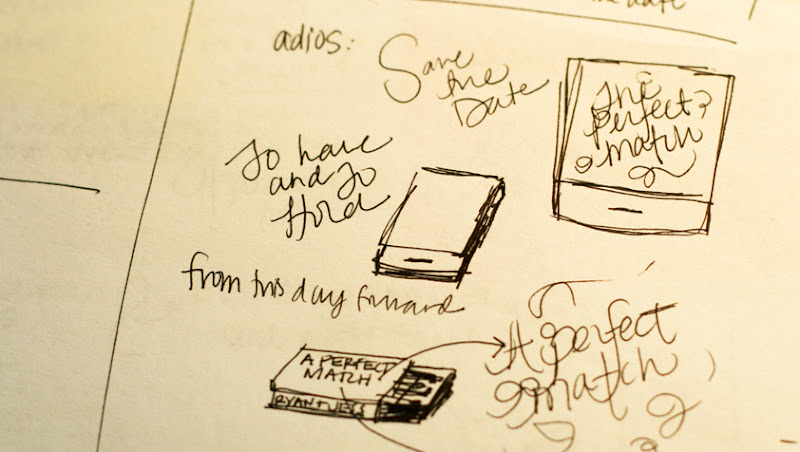 the date
adios:
Save
the
Date
The
perfect
match
To have
and to
Hold
from this day forward
A PERFECT
MATCH
RYAN
A perfect
match